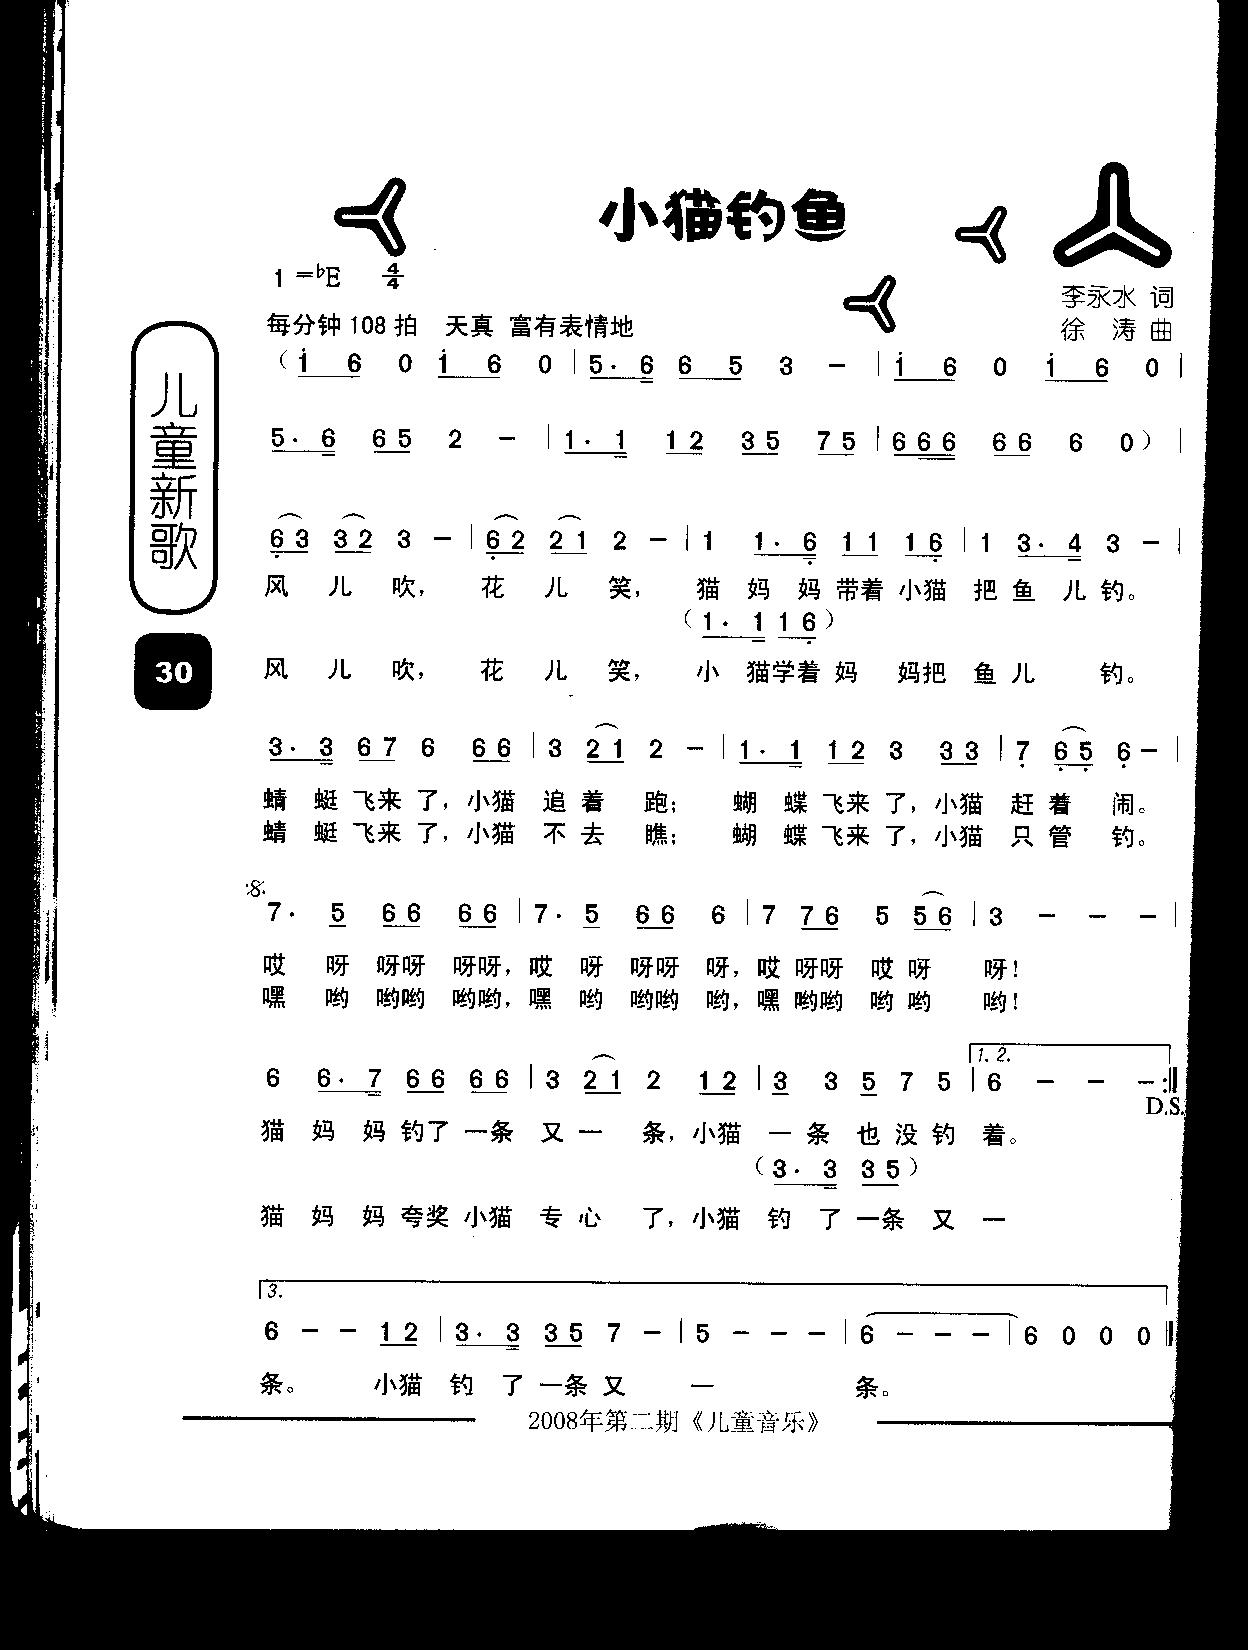 小猫钓鱼
1=♭E 4/4
李永水 词
每分钟108拍 天真 富有表情地
徐 涛 曲
儿童新歌
30
(i 6 0 i 6 0 | 5· 6 6 5 3 - | i 6 0 i 6 0 |
5· 6 6 5 2 - | 1· 1 1 2 3 5 7 5 | 6 6 6 6 6 6 0) |
6 3 3 2 3 - | 6 2 2 1 2 - | 1 1· 6 1 1 1 6 | 1 3· 4 3 - |
风 儿 吹, 花 儿 笑, 猫 妈 妈 带着 小猫 把 鱼 儿 钓。
(1· 1 1 6)
风 儿 吹, 花 儿 笑, 小 猫学着 妈 妈把 鱼 儿 钓。
3· 3 6 7 6 6 6 | 3 2 1 2 - | 1· 1 1 2 3 3 3 | 7 6 5 6 - |
蜻 蜓 飞来 了, 小猫 追 着 跑; 蝴 蝶 飞来 了, 小猫 赶 着 闹。
蜻 蜓 飞来 了, 小猫 不 去 瞧; 蝴 蝶 飞来 了, 小猫 只 管 钓。
7· 5 6 6 6 6 | 7· 5 6 6 6 | 7 7 6 5 5 6 | 3 - - - |
哎 呀 呀呀 呀呀, 哎 呀 呀呀 呀, 哎 呀呀 哎 呀 呀!
嘿 哟 哟哟 哟哟, 嘿 哟 哟哟 哟, 嘿 哟哟 哟 哟 哟!
1. 2.
6 6· 7 6 6 6 6 | 3 2 1 2 1 2 | 3 3 5 7 5 | 6 - - - :‖
D.S.
猫 妈 妈 钓了 一条 又 一 条, 小猫 一 条 也 没 钓 着。
(3· 3 3 5)
猫 妈 妈 夸奖 小猫 专 心 了, 小猫 钓 了 一条 又 一
3.
6 - - 1 2 | 3· 3 3 5 7 - | 5 - - - | 6 - - - | 6 0 0 0 ‖
条。 小猫 钓 了 一条 又 一 条。
2008年第二期《儿童音乐》